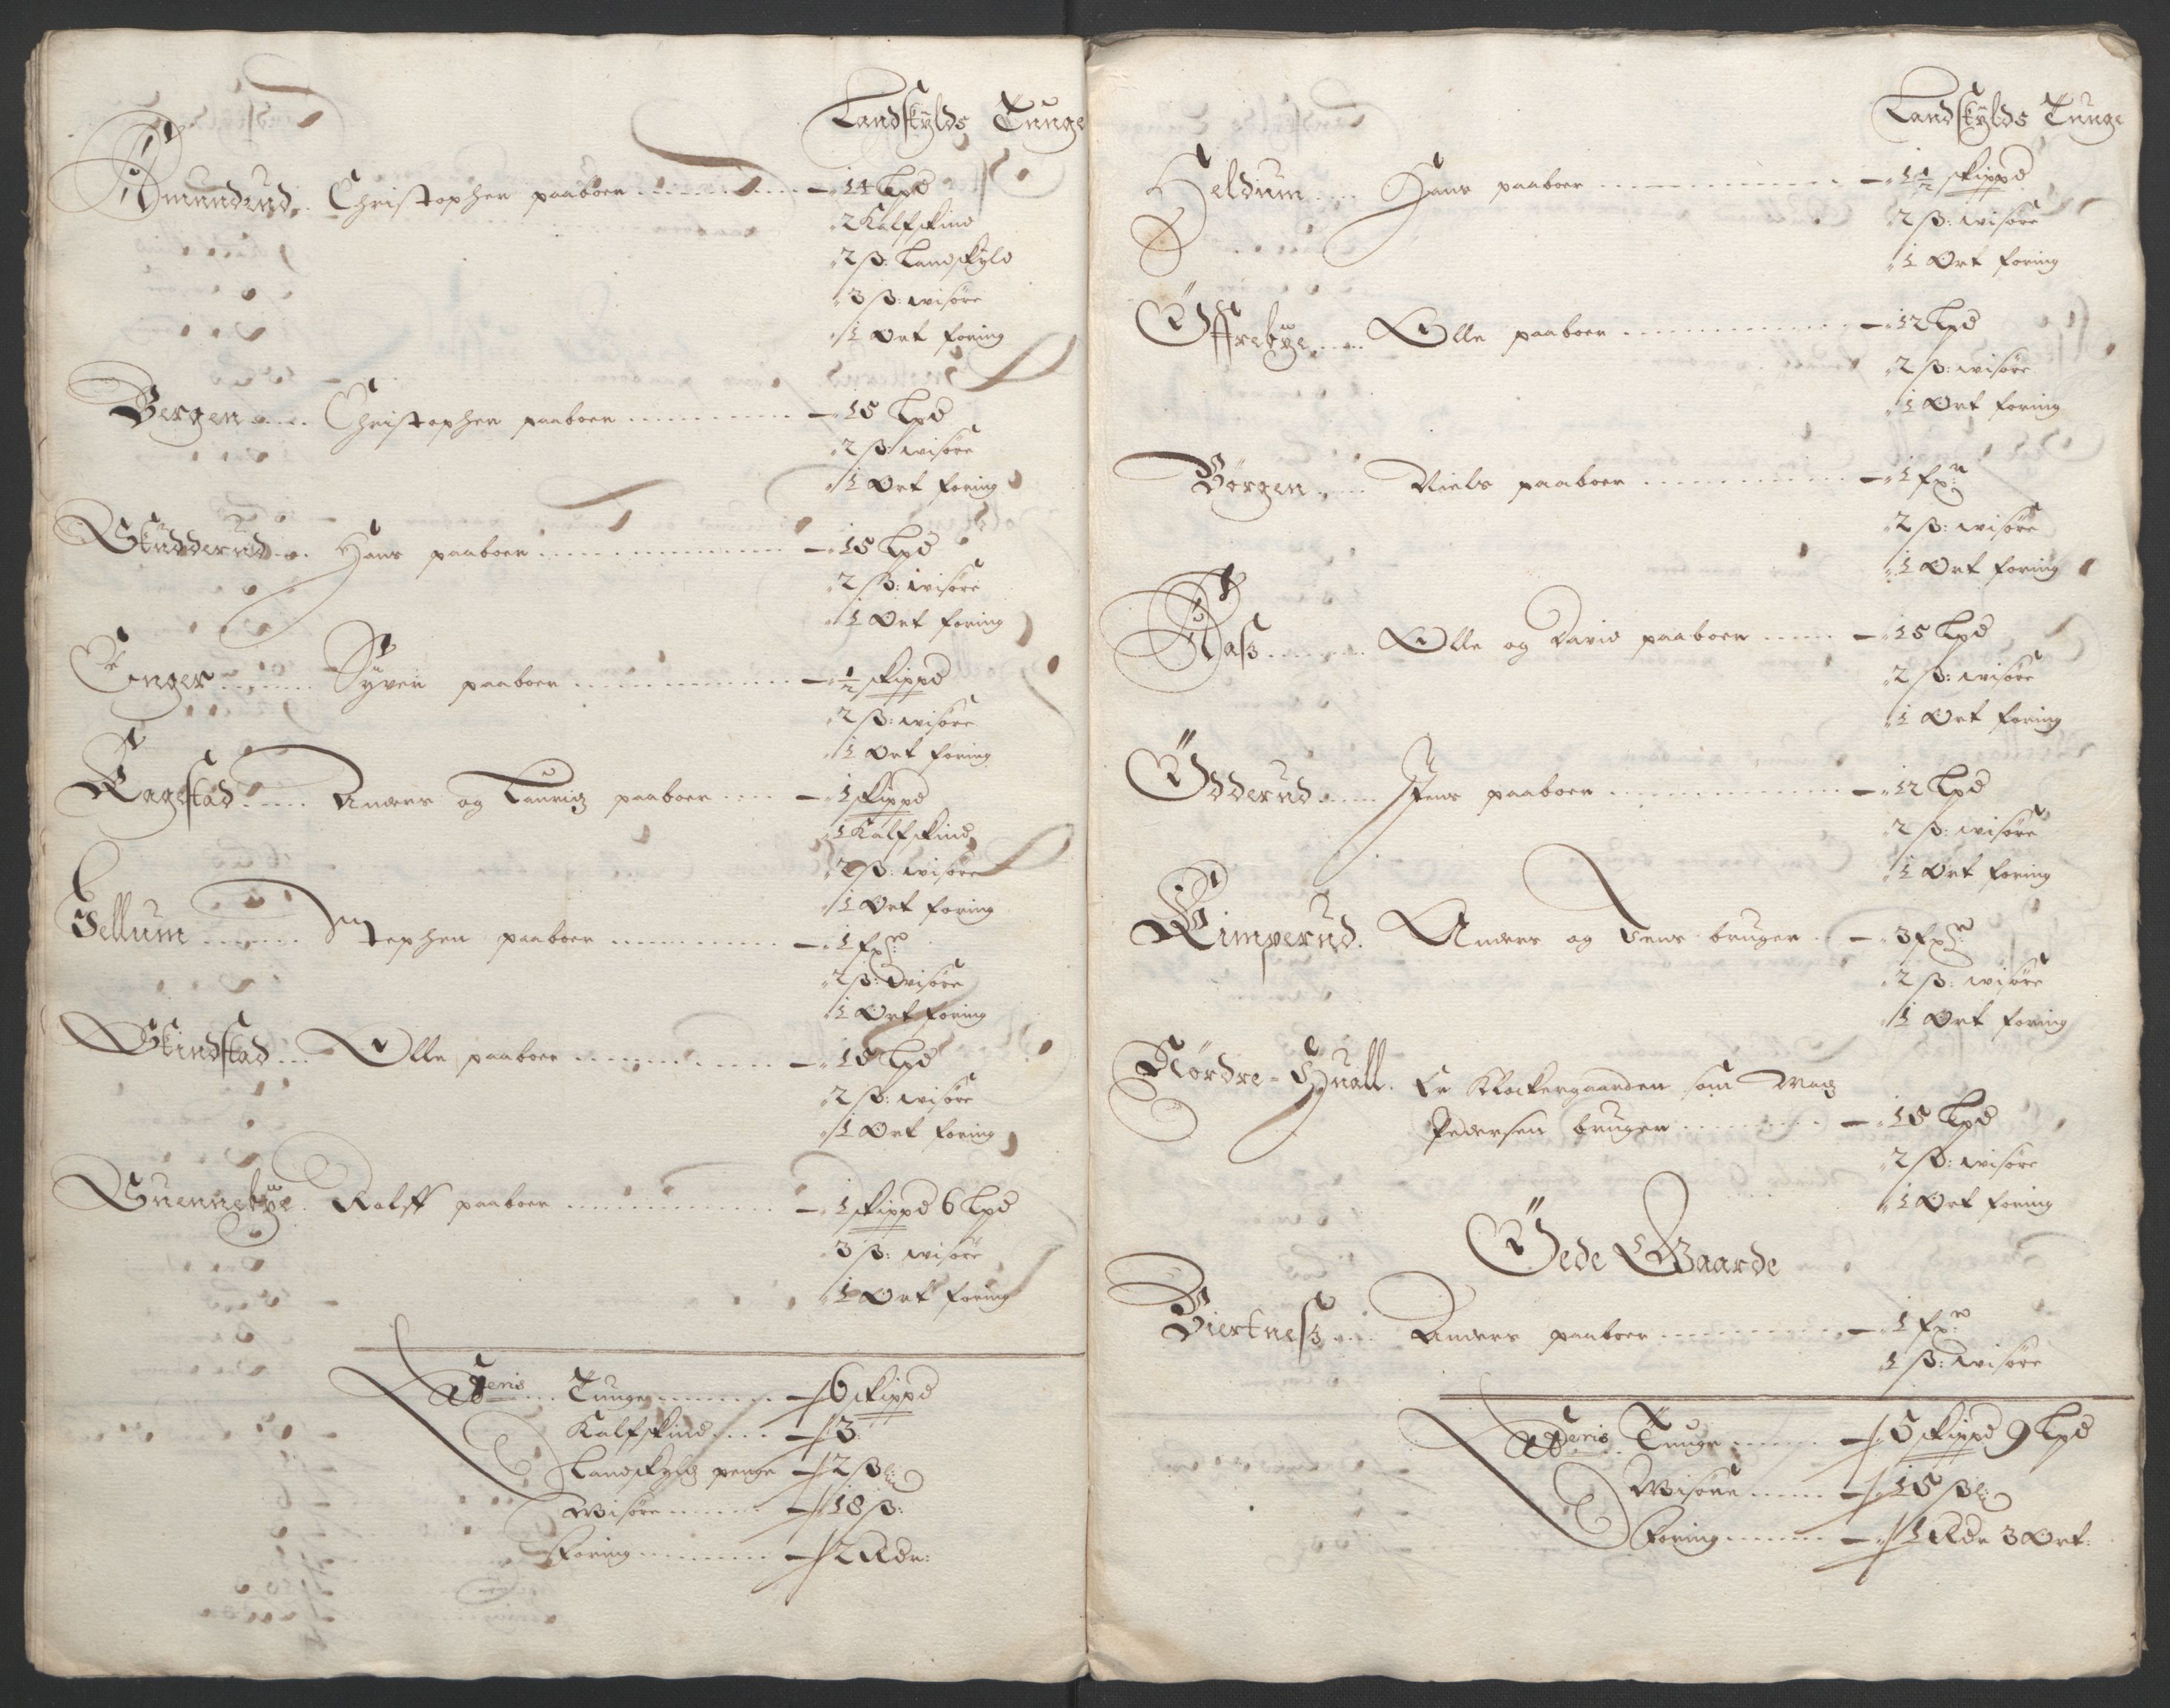 Landskylds Tunge
Amundrud. Christopher paaboer - 14 Lpd
2 Kalfskind
2 ß: Landskyld
3 ß: wisöre
1 Ort foring
Bergen Christopher paaboer - 15 Lpd
2 ß: wisöre
1 Ort foring
Skudderud Hans paaboer - 15 Lpd
2 ß: wisöre
1 Ort foring
Enger Syver paaboer - ½ skippd
2 ß: wisöre
1 Ort foring
Ragestad Anders og Lauridz paaboer - 1 skippd
1 Kalfskind
2 ß: wisöre
1 Ort foring
Sellum Stephen paaboer - 1 fx:
2 ß: wisöre
1 Ort foring
Skindstad Olle paaboer - 15 Lpd
2 ß: wisöre
1 Ort foring
Guennebye Rolff paaboer - 1 skippd 6 Lpd
3 ß: wisöre
1 Ort foring
Lateris Tunge - 6 skippd
Kalfskind - 3
Landskyldz penge - 2 ß:
Wisöre - 18 ß:
Foring - 2 Rdr:
Landskylds Tunge
Heldum Hans paaboer - 1½ skippd
2 ß: wisöre
1 Ort foring
Offrebye Olle paaboer - 12 Lpd
2 ß: wisöre
1 Ort foring
Börgen Niels paaboer - 1 fx:
2 ß: wisöre
1 Ort foring
Aaß Olle og David paaboer - 15 Lpd
2 ß: wisöre
1 Ort foring
Odderud Jens paaboer - 12 Lpd
2 ß: wisöre
1 Ort foring
Rimperud. Anders og Jens bruger - 3 fx:
2 ß: wisöre
1 Ort foring
Nördre-Huall. Er Klockergaarden som Madz
Pedersen bruger - 15 Lpd
2 ß: wisöre
1 Ort foring
Öede Gaarde
Biertneß Anders paaboer - 1 fx:
1 ß: wisöre
Lateris Tunge - 5 skippd 9 Lpd
Wisöre - 15 ß:
Foring - 1 Rdr 3 Ort: